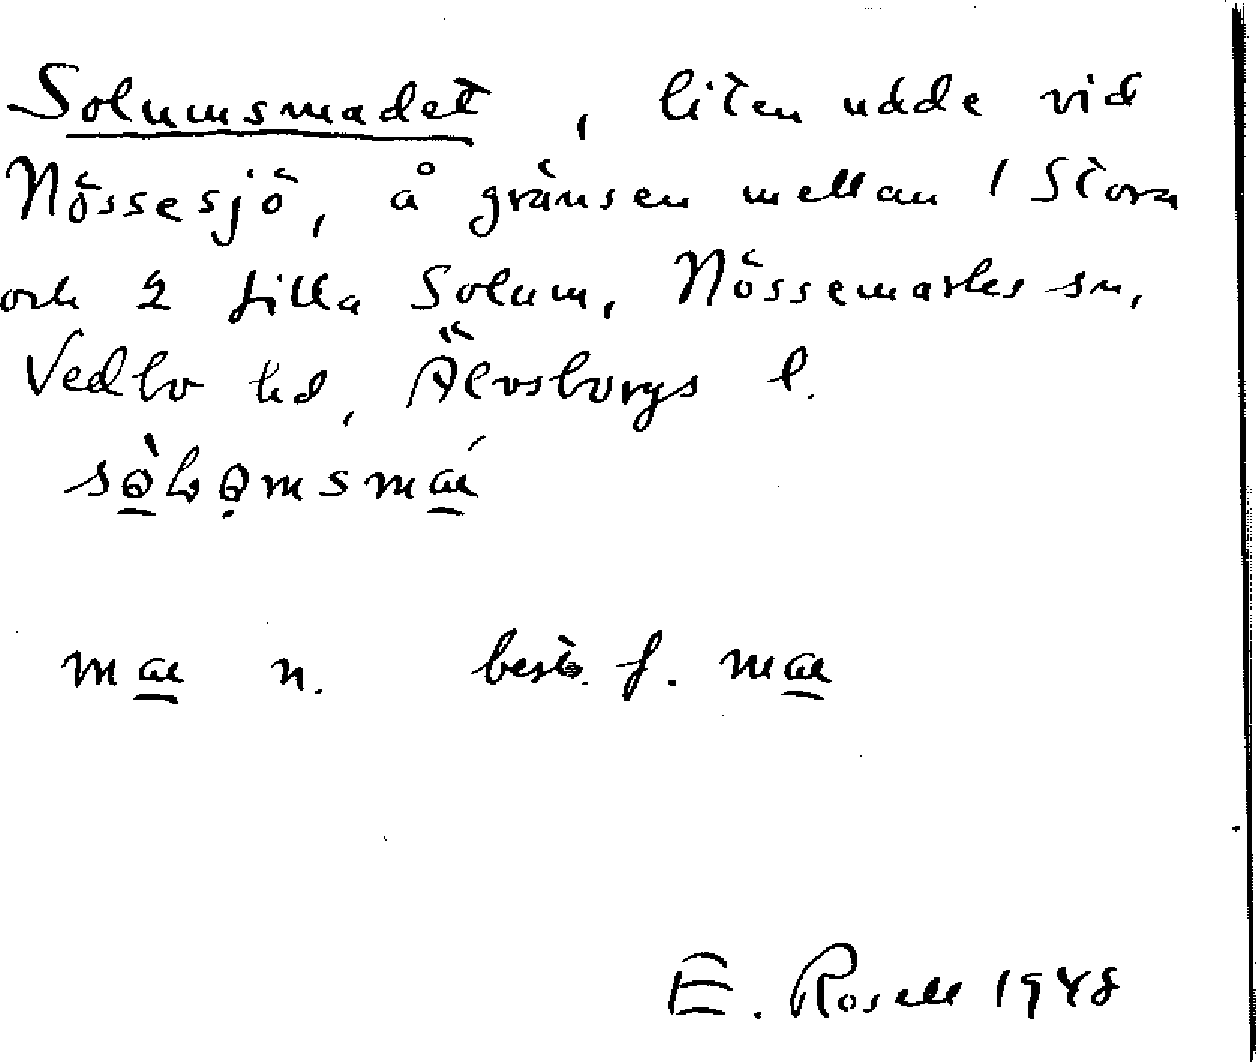 Solumsmadet, liten udde vid
Nössesjö, å gränsen mellan 1 Stora
och 2 Lilla Solum, Nössemarks sn,
Vedbo hd, Älvsborgs l.
n. best. f.
E. Rosell 1948